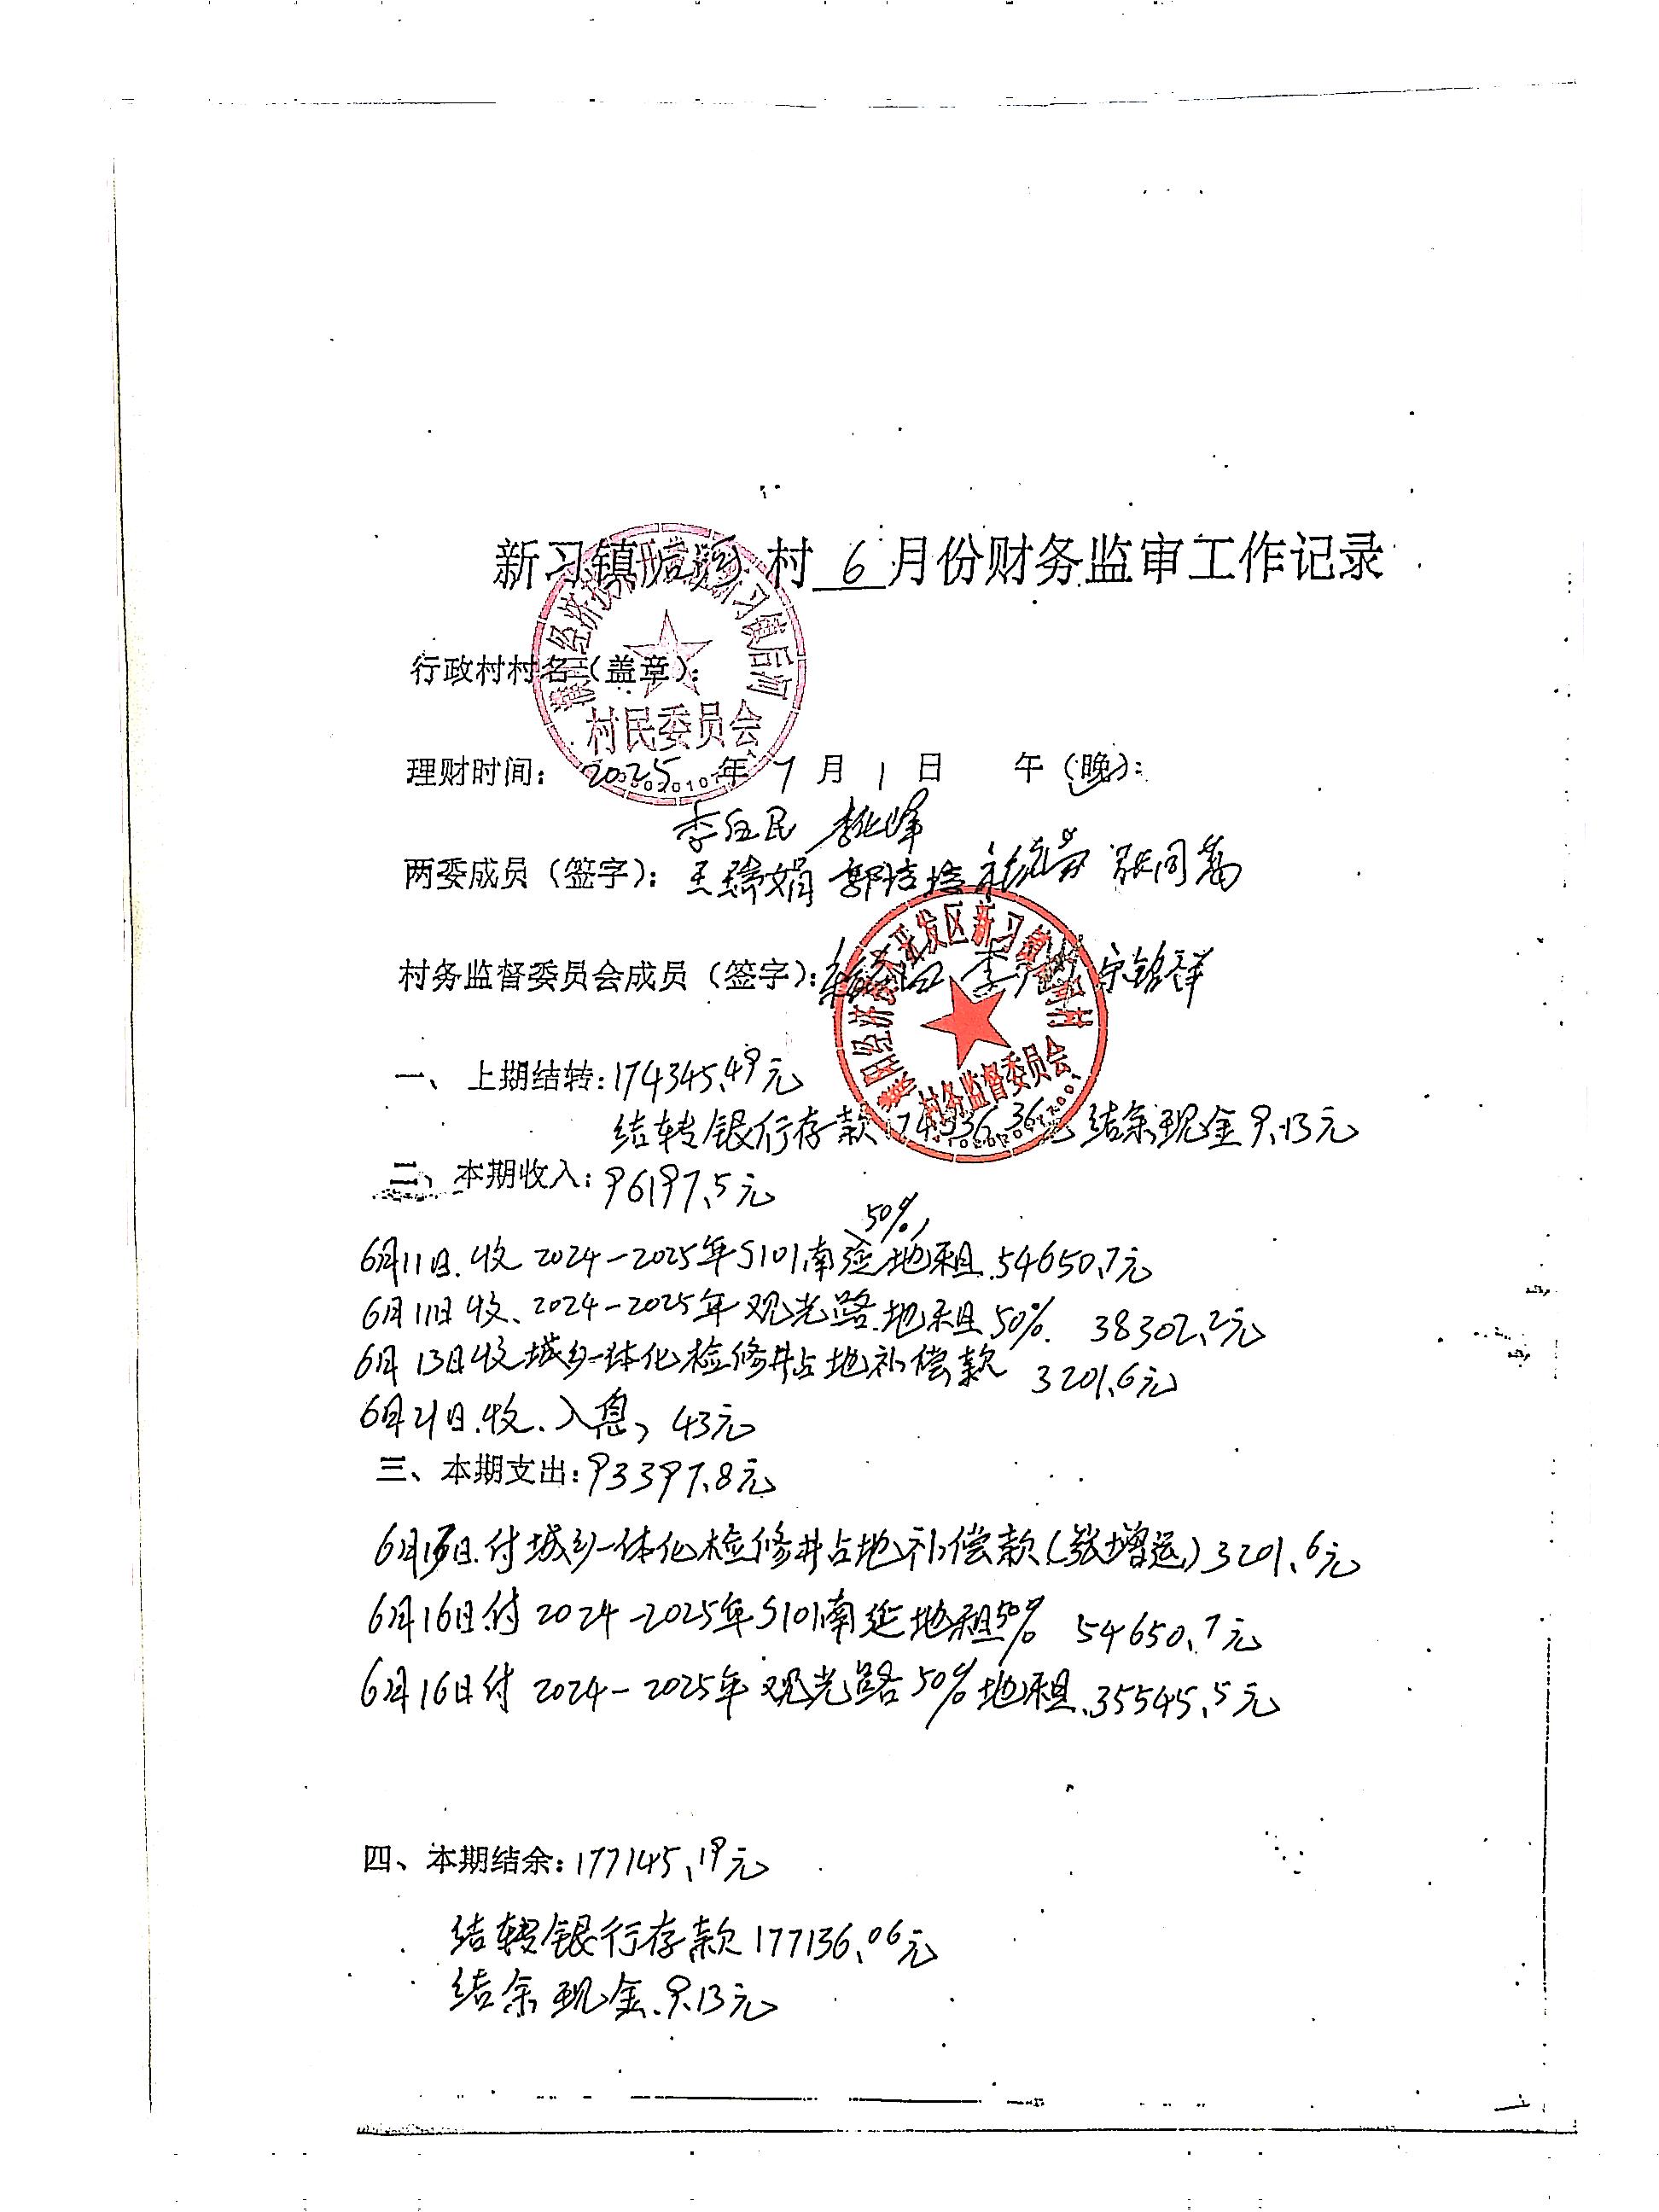 新习镇后河村 6 月份财务监审工作记录
行政村村名（盖章）：
新习镇后河
村民委员会
理财时间： 2025 年 7 月 1 日 午（晚）：
李伍民
两委成员（签字）： 王瑞娟 郭洁 张同
村务监督委员会成员（签字）： 李 宋铭祥
经济技术开发区新习镇后河村
村务监督委员会
一、 上期结转：174345.49元
结转银行存款174336.36元 结余现金9.13元
二、本期收入：96197.5元
50%
6月11日.收 2024-2025年S101南延地租.54650.7元
6月11日收、2024-2025年观光路.地租50%. 38302.2元
6月13日收城乡一体化检修井占地补偿款 3201.6元
6月21日.收.入息、43元
三、本期支出：93397.8元
6月13日.付城乡一体化检修井占地补偿款(张增运)3201.6元
6月16日付 2024-2025年S101南延地租50% 54650.7元
6月16日付 2024-2025年观光路50%地租.35545.5元
四、本期结余：177145.19元
结转银行存款177136.06元
结余现金.9.13元